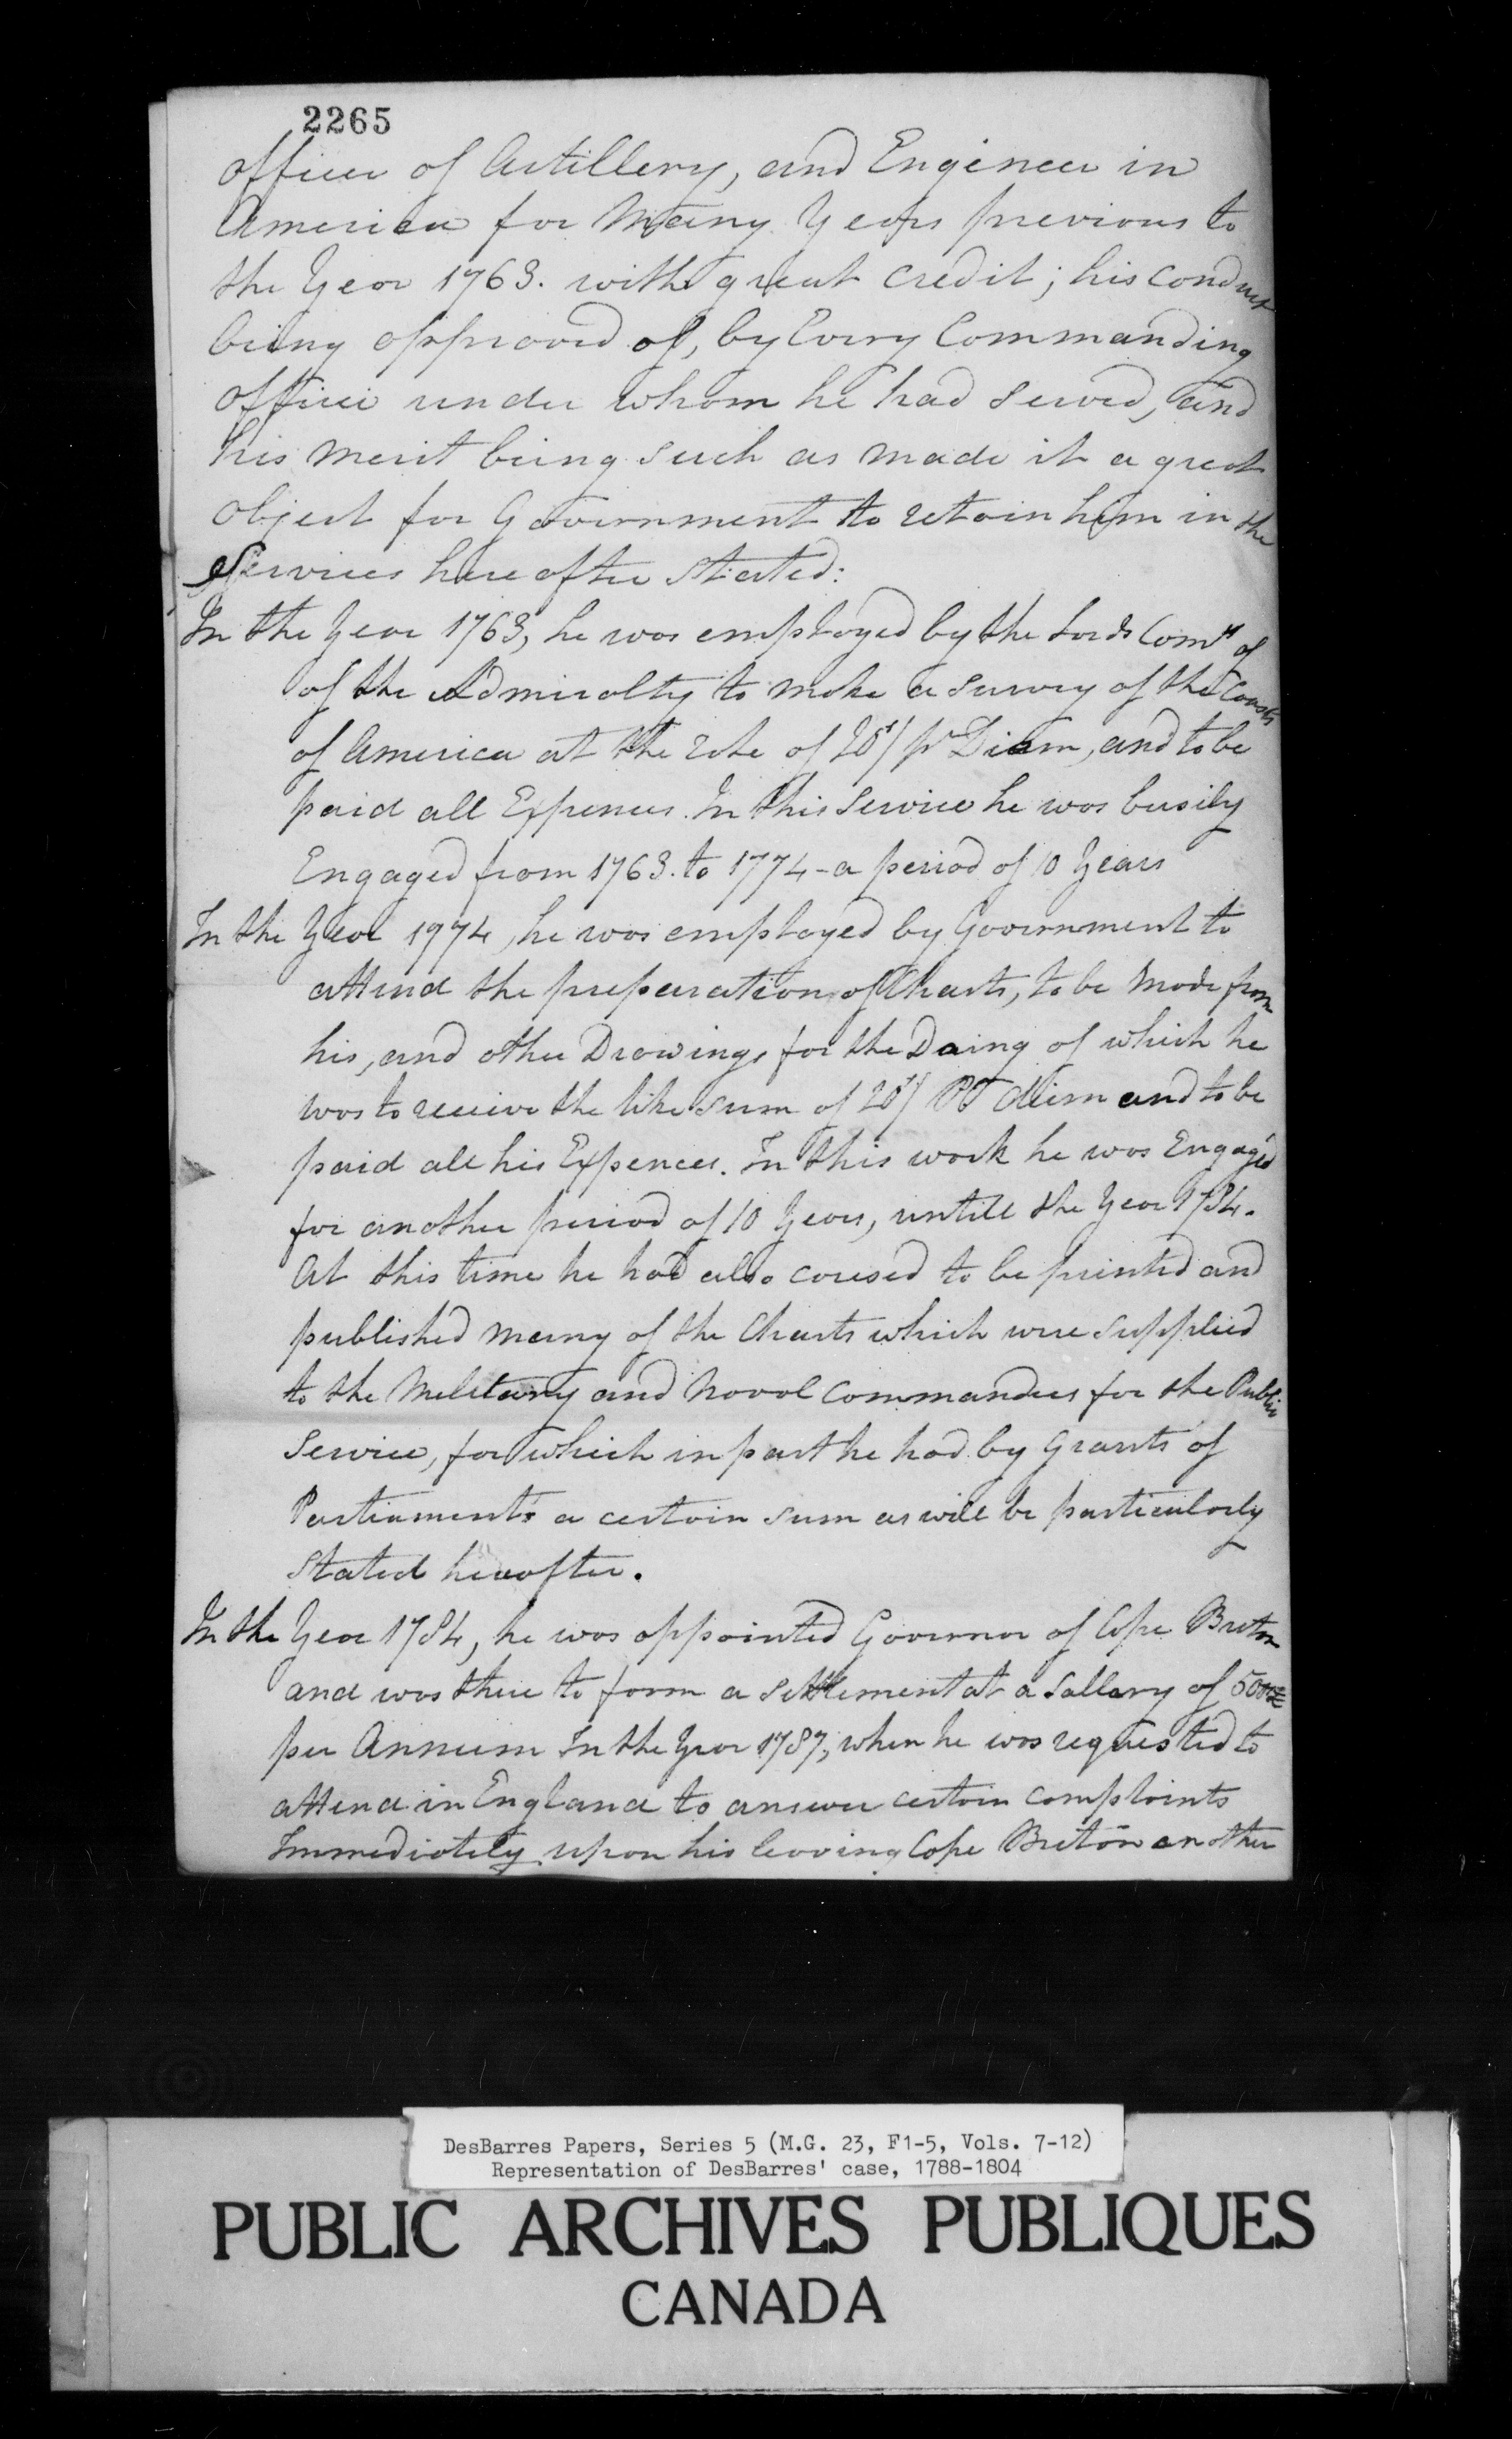 2265
officer of Artillery, and Engineer in
America for Many Years previous to
the Year 1763. with great credit; his conduct
being approved of, by Every Commanding
officer under whom he had served, and
his merit being such as made it a great
object for Government to retain him in the
Services here after Stated:
In the Year 1763, he was employed by the Lords Comrs of
of the Admiralty to make a survey of the Coasts
of America at the rate of 20s/ pr Diem, and to be
paid all Expences. In this Service he was busily
Engaged from 1763. to 1774 - a period of 10 Years
In the Year 1974, he was employed by Government to
attend the preparation of Charts, to be made from
his, and other Drawings, for the Doing of which he
was to receive the like sum of 20s/ Pr diem and to be
paid all his Expences. In this work he was Engag'd
for another period of 10 Years, untill the Year 1784.
At this time he had also caused to be printed and
published many of the Charts which were supplied
to the Military and Naval Commanders for the Public
Service, for which in part he had by Grants of
Parliament a certain sum as will be particularly
stated hereafter.
In the Year 1784, he was appointed Governor of Cape Breton
and was there to form a settlement at a Sallery of 500£
per Annum In the Year 1787, when he was requested to
attend in England to answer certain complaints
Immediately upon his leaving Cape Breton another
DesBarres Papers, Series 5 (M.G. 23, F1-5, Vols. 7-12)
Representation of DesBarres' case, 1788-1804
PUBLIC ARCHIVES PUBLIQUES
CANADA